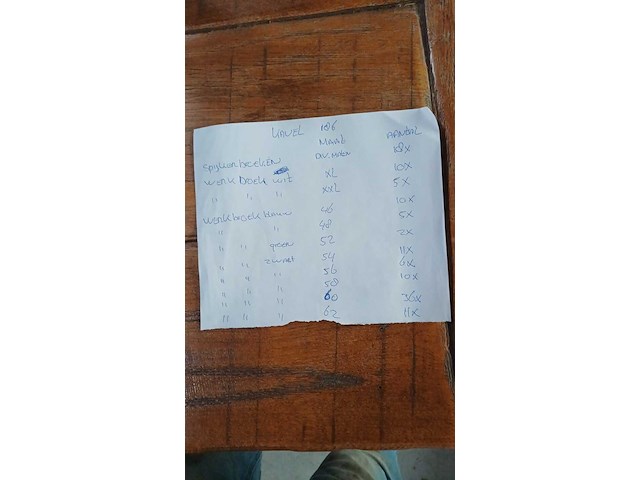 KAVEL 186
MAAT AANTAL
Spijkerbroeken DIV. MATEN 18X
Werk broek wit XL 10X
" " " XXL 5X
Werkbroek blauw 46 10X
" " 48 5X
" " groen 52 2X
" " zwart 54 11X
" " " 56 6X
" " " 58 10X
" " " 60 36X
" " " 62 11X